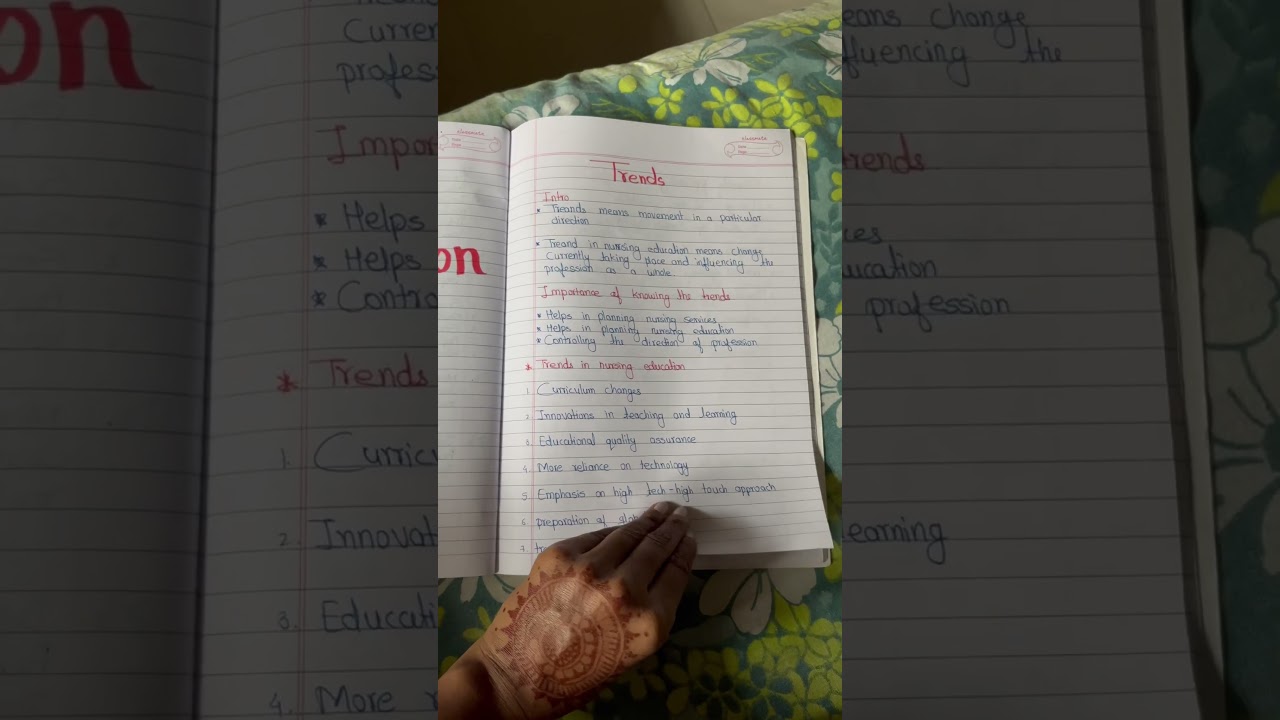 on
Trends
Intro
* Treands means movement in a particular
direction
* Treand in nursing education means change
Currently taking place and influencing the
profession as a whole.
Importance of knowing the trends
* Helps in planning nursing services
* Helps in planning nursing education
* Controlling the direction of profession
* Trends in nursing education
1. Curriculum changes
2. Innovations in teaching and learning
3. Educational quality assurance
4. More reliance on technology
5. Emphasis on high tech-high touch approach
6. preparation of
7.